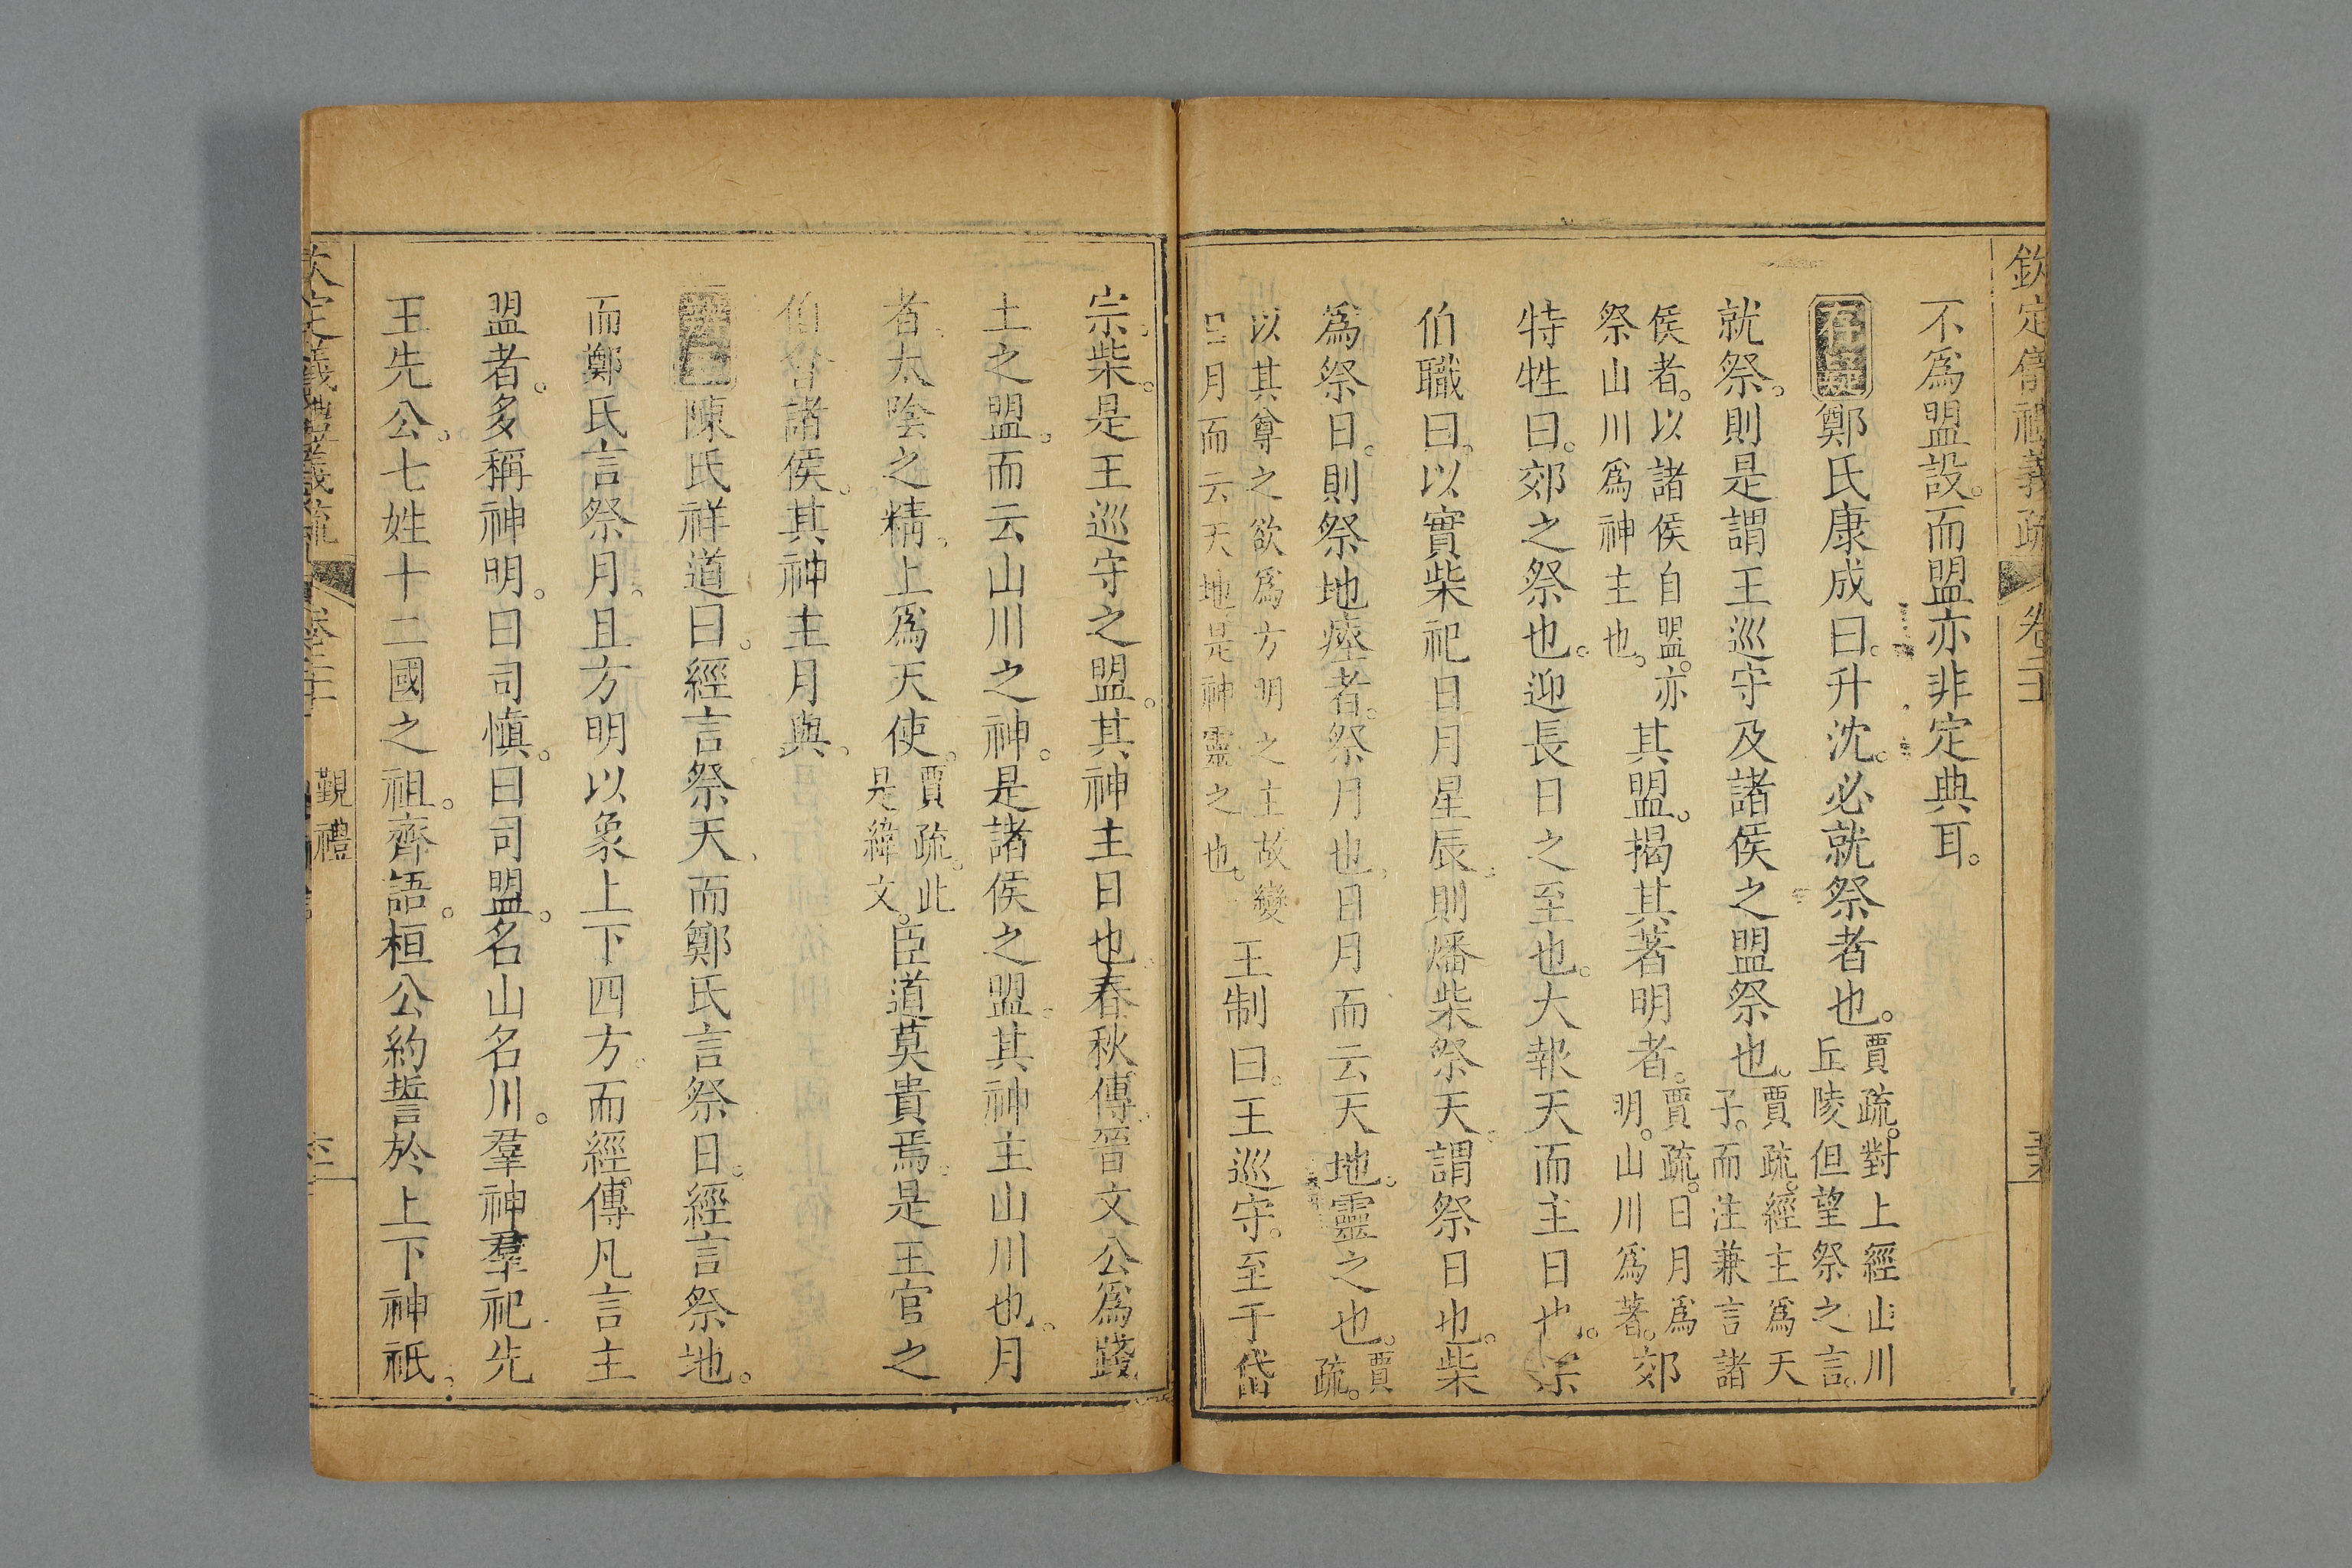 欽定儀禮義疏 卷二十
不爲盟設。而盟亦非定典耳。
存疑 鄭氏康成曰。升沈。必就祭者也。賈疏。對上經山川丘陵但望祭之言。
就祭。則是謂王巡守及諸侯之盟祭也。賈疏。經主爲天子。而注兼言諸
侯者。以諸侯自盟。亦祭山川爲神主也。其盟。揭其著明者。賈疏。日月爲明。山川爲著。郊
特牲曰。郊之祭也。迎長日之至也。大報天而主日也。宗
伯職曰。以實柴祀日月星辰。則燔柴祭天。謂祭日也。柴
爲祭日。則祭地瘞者。祭月也。日月而云天地。靈之也。賈疏。
以其尊之欲爲方明之主故變日月而云天地。是神靈之也。王制曰。王巡守。至于岱
宗。柴。是王巡守之盟。其神主日也。春秋傳。晉文公爲踐
土之盟。而云山川之神。是諸侯之盟。其神主山川也。月
者。太陰之精。上爲天使。賈疏。此是緯文。臣道莫貴焉。是王官之
伯會諸侯。其神主月與。
陳氏祥道曰。經言祭天。而鄭氏言祭日。經言祭地。
而鄭氏言祭月。且方明以象上下四方。而經傳凡言主
盟者。多稱神明。曰司愼。曰司盟。名山名川。羣神羣祀先
王先公。七姓十二國之祖。齊語。桓公約誓於上下神祇。
欽定儀禮義疏 卷二十 覲禮